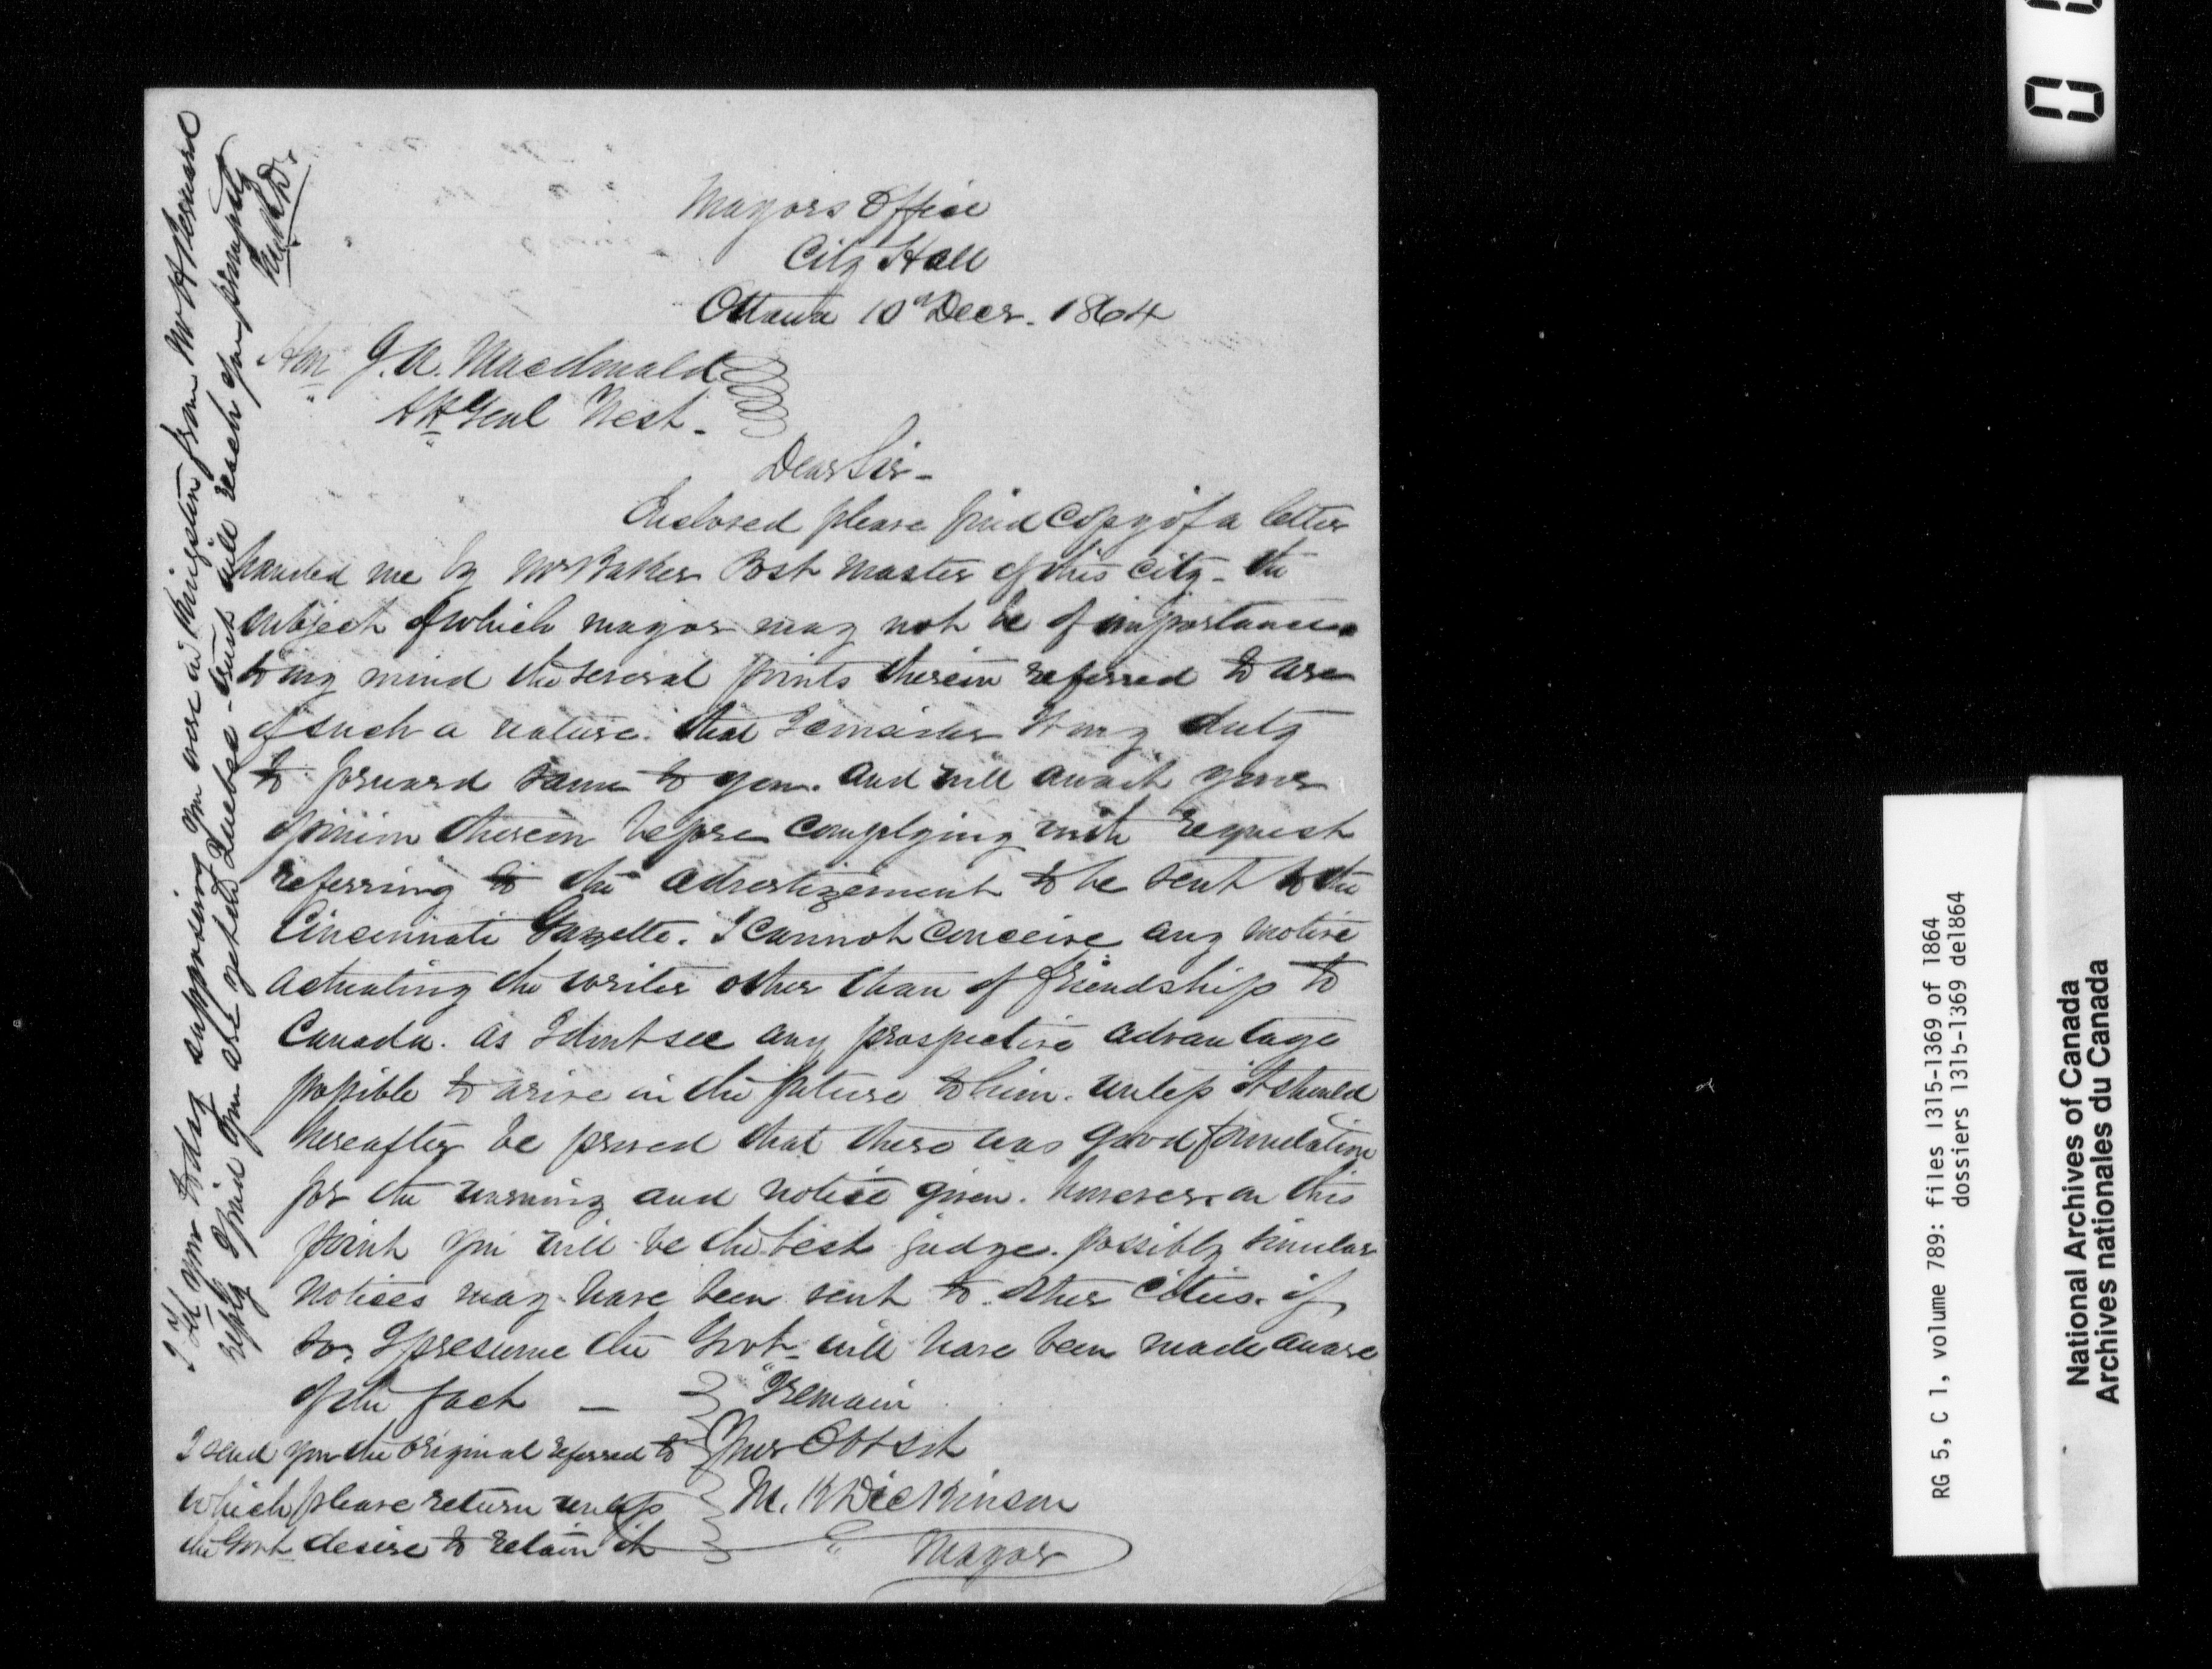 Mayors Office
City Hall
Ottawa 10th Decr. 1864
Hon J. A. Macdonald
Att Genl West -
Dear Sir -
Enclosed please find Copy of a letter
handed me by Mr Baker Post Master of this City - the
subject of which may or may not be of importance
to my mind the several points therein referred to are
of such a nature. that I consider it my duty
to forward same to you. and will await your
opinion thereon before complying with request
referring to the advertizement to be sent to the
Cincinnati Gazette. I cannot conceive any motive
actuating the writer other than of friendship to
Canada. as I dont see any prospective advantage
possible to arise in the future to him. unless it should
hereafter be proved that there was good foundation
for the warning and notice given. however on this
point you will be the best judge. possibly similar
notices may have been sent to other cities. if
so, I presume the Govt will have been made aware
of the fact -
I remain
Your Obt Svt
M. K Dickinson
Mayor
I send you the original referred to
which please return unless
the Govt desire to retain it
I tel you today supposing you were in Kingston from Mr
reply I find you are yet at Quebec - trust will reach you promptly
M.K.D.
RG 5, C 1, volume 789: files 1315-1369 of 1864
dossiers 1315-1369 de1864
National Archives of Canada
Archives nationales du Canada